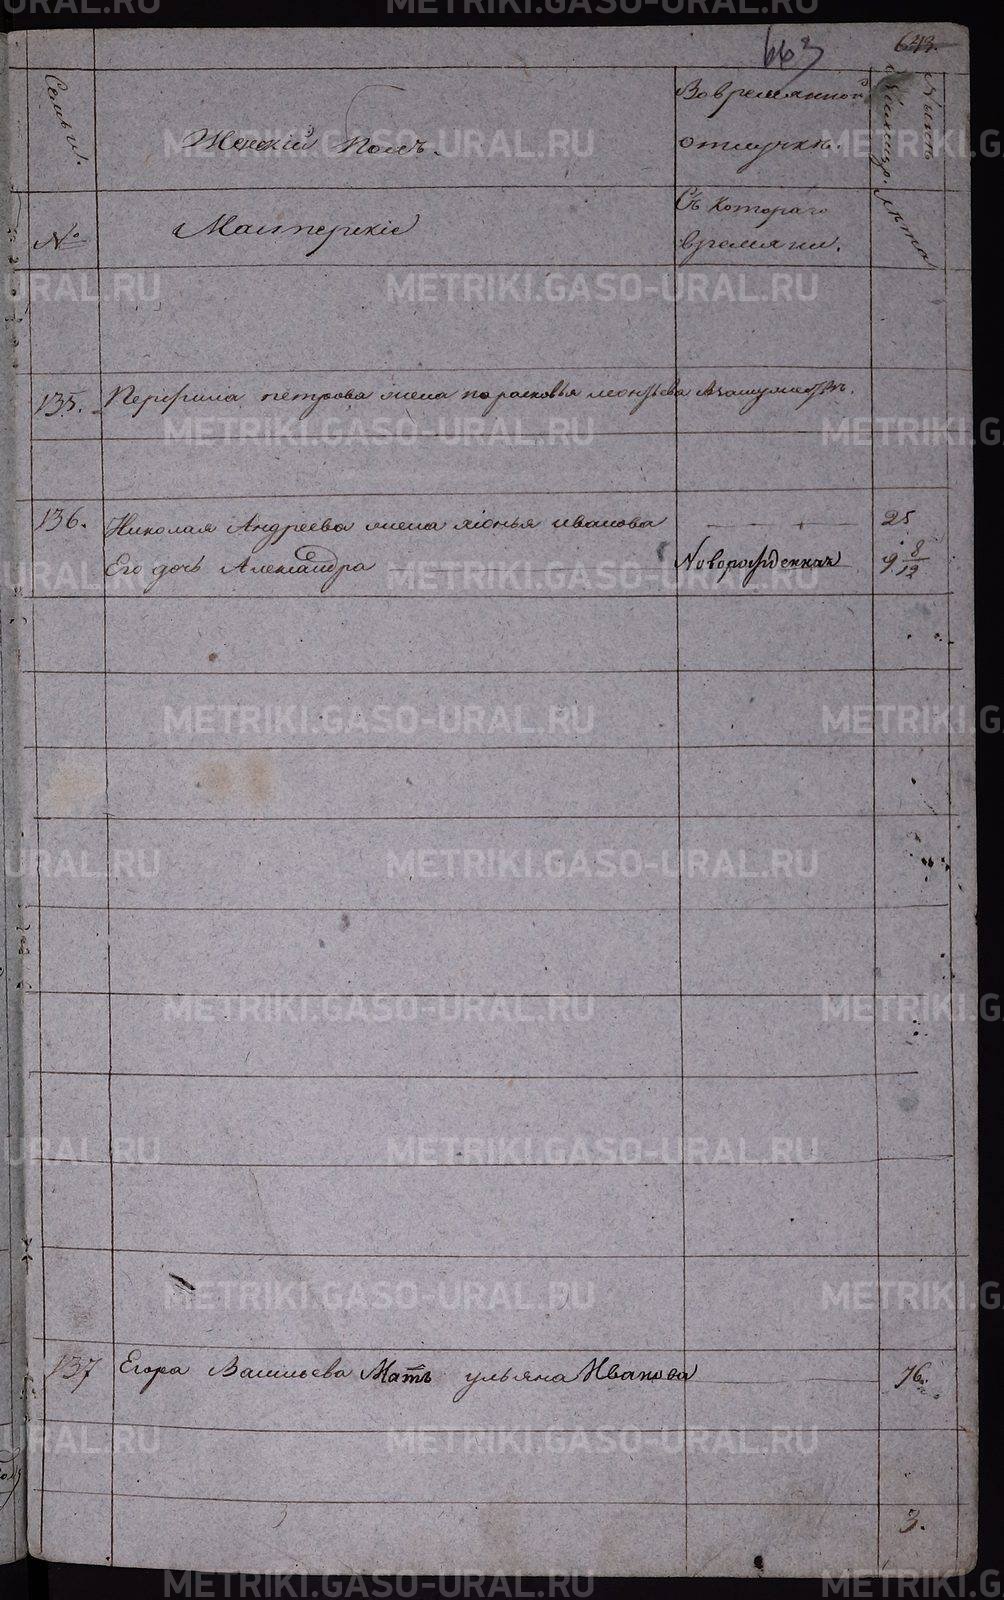 663
643.
Семьи.
Женскій полъ.
Вовремянной
отлучкѣ.
Нынѣ
лѣта
№
Мастерскіе
Съ котораго
времяни.
135.
Перфила петрова жена парасковья леонтьева
136.
Николая Андреева жена иванова
25
Его дочь Александра
Новорожденная
9 8/12
137
Егора Васильева Мать ульяна Иванова
76.
3.
METRIKI.GASO-URAL.RU